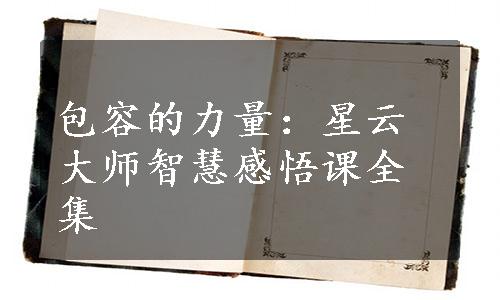 包容的力量：星云
大师智慧感悟课全
集